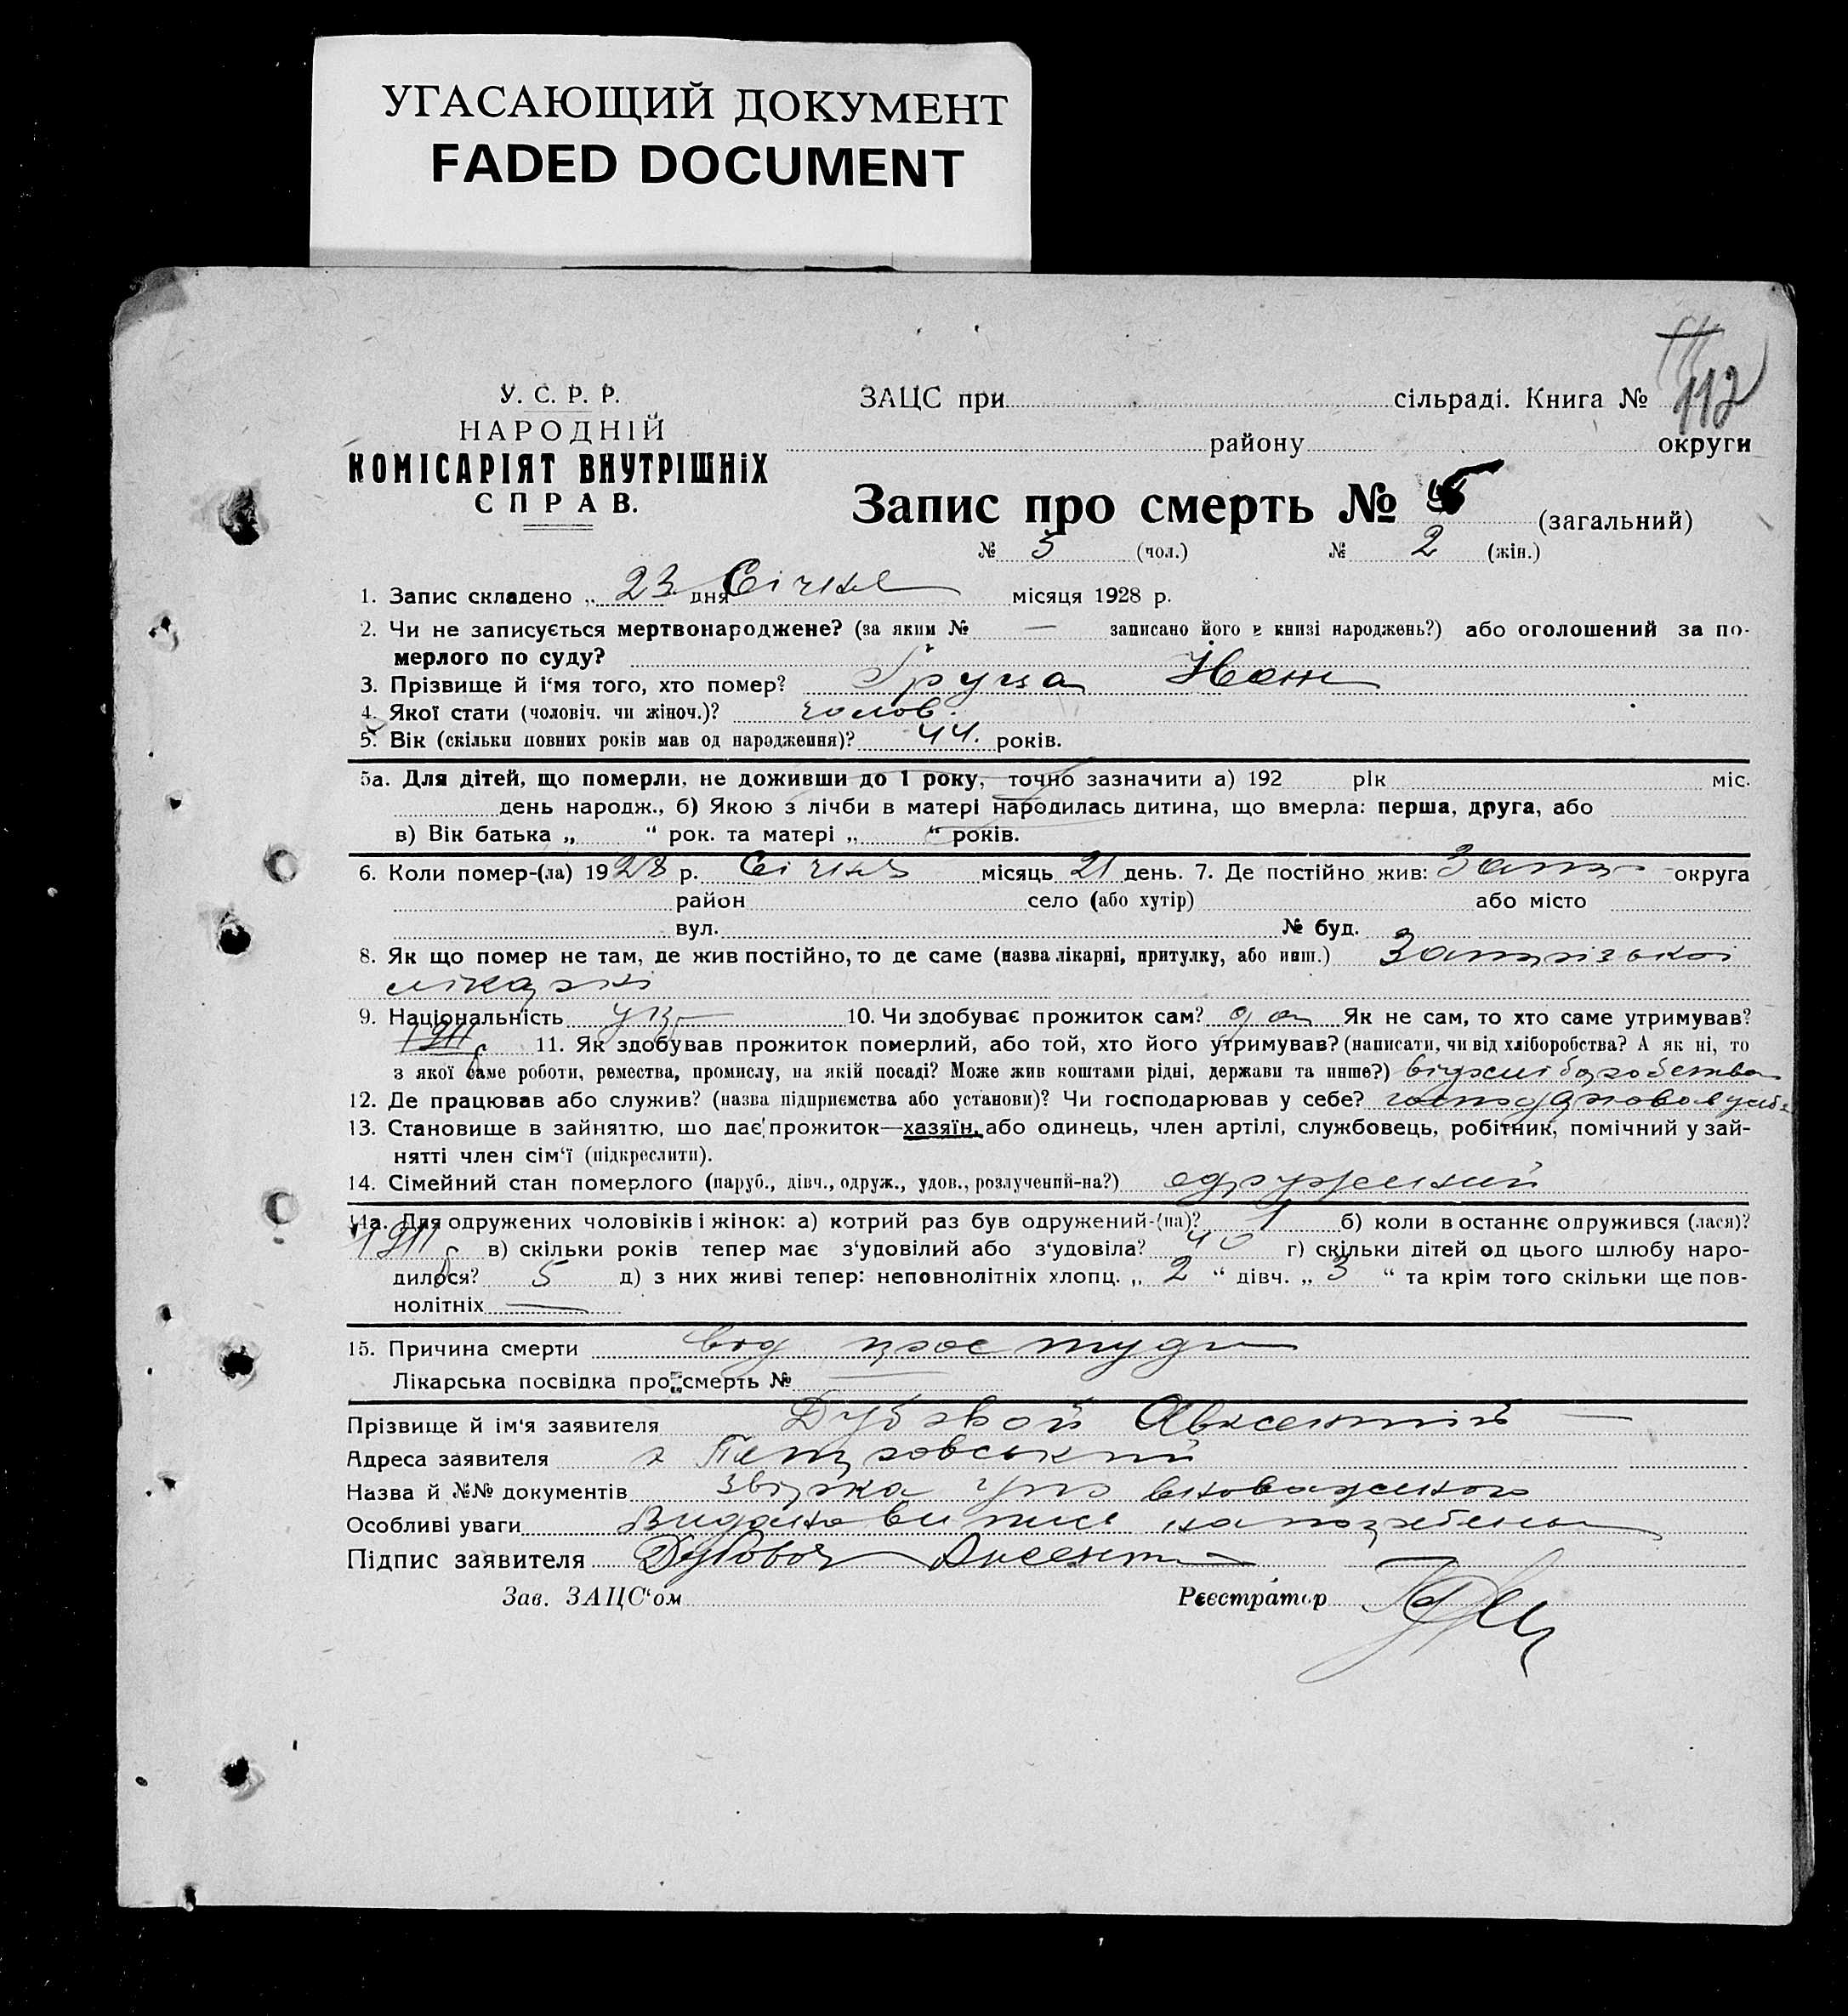 УГАСАЮЩИЙ ДОКУМЕНТ
FADED DOCUMENT
112
У. С. Р. Р.
НАРОДНІЙ
КОМІСАРІЯТ ВНУТРІШНІХ
СПРАВ.
ЗАЦС при сільраді. Книга №
району округи
Запис про смерть № 5 (загальний)
№ 3 (чол.) № 2 (жін.)
1. Запис складено „ 23 дня Січня місяця 1928 р.
2. Чи не записується мертвонароджене? (за яким № — записано його в книзі народжень?) або оголошений за по-
мерлого по суду?
3. Прізвище й і'мя того, хто помер?
4. Якої стати (чоловіч. чи жіноч.)? чолов.
5. Вік (скільки повних років мав од народження)? 44. років.
5а. Для дітей, що померли, не доживши до 1 року, точно зазначити а) 192 рік міс.
день народж., б) Якою з лічби в матері народилась дитина, що вмерла: перша, друга, або
в) Вік батька „ “ рок. та матері „ “ років.
6. Коли помер-(ла) 1928 р. Січня місяць 21 день. 7. Де постійно жив: округа
район село (або хутір) або місто
вул. № буд.
8. Як що помер не там, де жив постійно, то де саме (назва лікарні, притулку, або инш.)
лікарні
9. Національність укр 10. Чи здобуває прожиток сам? да Як не сам, то хто саме утримував?
1911 р 11. Як здобував прожиток померлий, або той, хто його утримував? (написати, чи від хліборобства? А як ні, то
з якої саме роботи, ремества, промислу, на якій посаді? Може жив коштами рідні, держави та инше?) від хліборобства
12. Де працював або служив? (назва підприємства або установи)? Чи господарював у себе? господарював у себе
13. Становище в зайняттю, що дає прожиток—хазяїн, або одинець, член артілі, службовець, робітник, помічний у зай-
нятті член сім'ї (підкреслити).
14. Сімейний стан померлого (паруб., дівч., одруж., удов., розлучений-на?) одружений
14а. Для одружених чоловіків і жінок: а) котрий раз був одружений-(на)? 1 б) коли в останнє одружився (лася)?
1911 р в) скільки років тепер має з'удовілий або з'удовіла? 40 г) скільки дітей од цього шлюбу наро-
дилося? 5 д) з них живі тепер: неповнолітніх хлопц. „ 2 “ дівч. „ 3 “ та крім того скільки ще пов-
нолітніх —
15. Причина смерти від простуди
Лікарська посвідка про смерть №
Прізвище й ім'я заявителя Дубовой Авксентій —
Адреса заявителя х Петровський
Назва й №№ документів
Особливі уваги Видана випись на погребення
Підпис заявителя Дубовой
Зав. ЗАЦС'ом Реєстратор